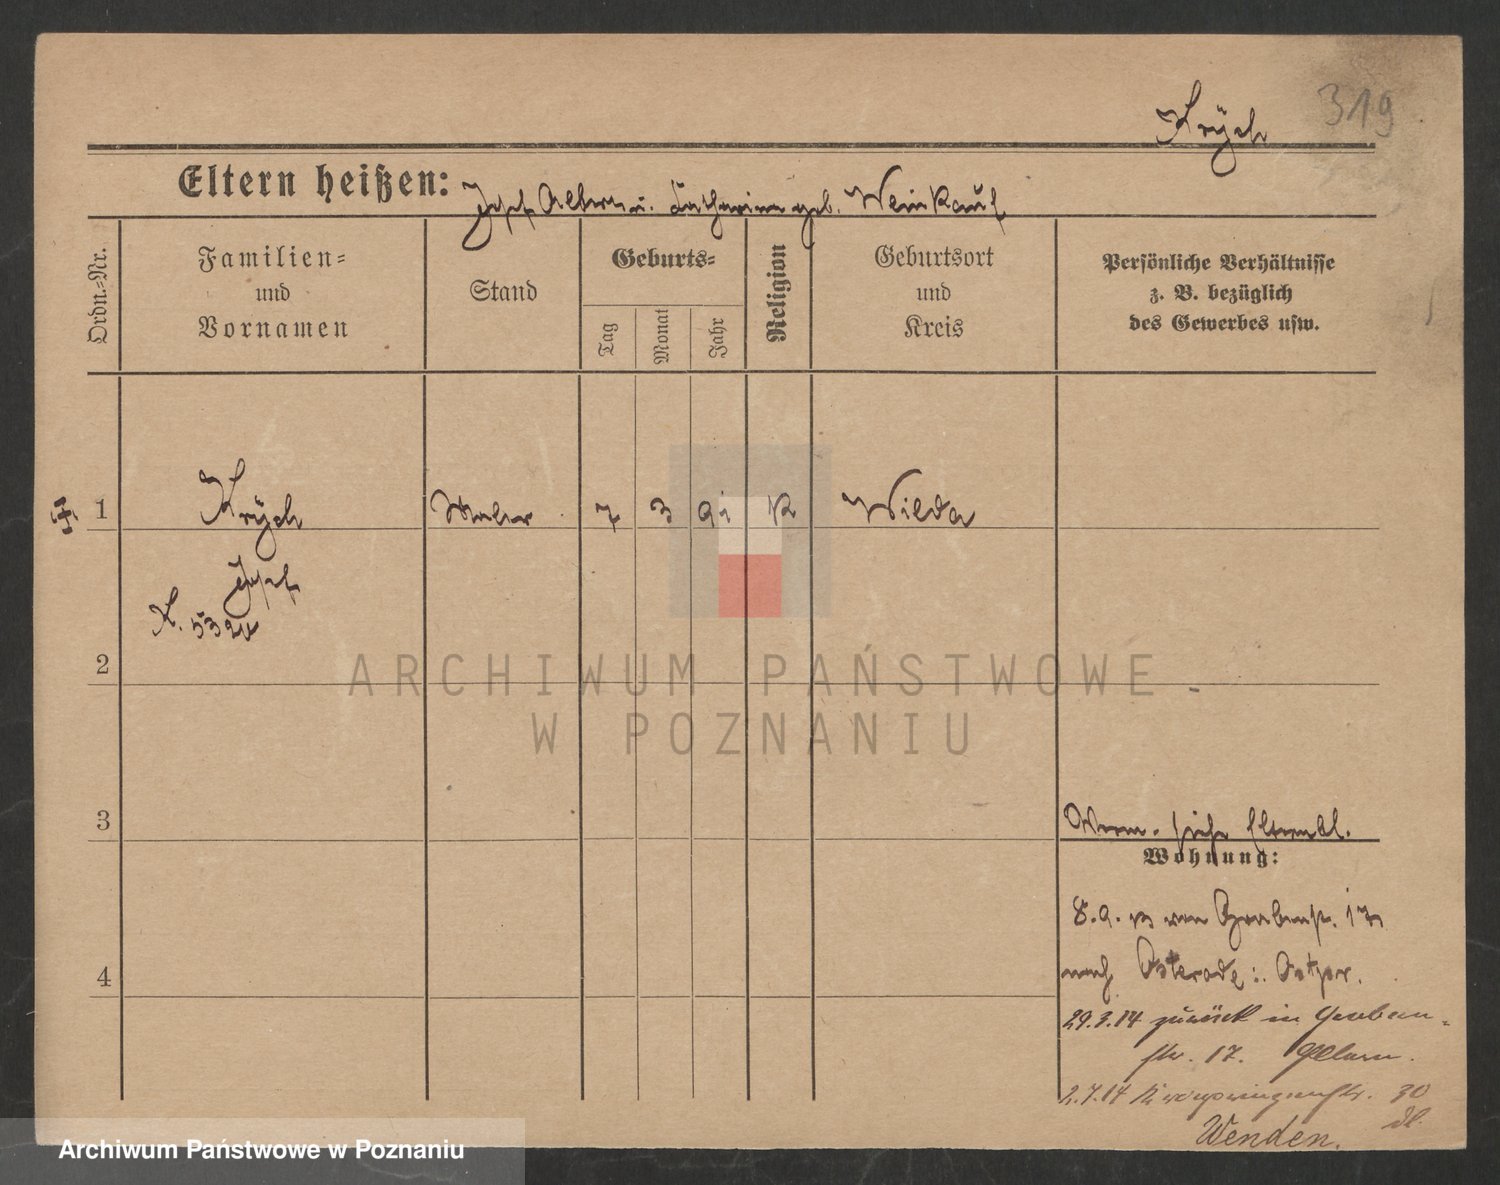 Krÿch 319
Eltern heißen: Josef Albert u. Katharina geb. Weinkauf
Ordn.-Nr.
Familien-
und
Vornamen
Stand
Geburts-
Tag
Monat
Jahr
Religion
Geburtsort
und
Kreis
Persönliche Verhältnisse
z. B. bezüglich
des Gewerbes usw.
1 Krÿch Maler 7 3 91 K Wilda
Josef
K.
2
3
siehe Elternbl.
Wohnung:
8.9.13 von Grabenstr. 17
nach Osterode: Ostpr.
4
29.3.14 zurück in Graben-
str. 17. Eltern.
2.7.14 Kronprinzenstr. 30
Wenden.
ARCHIWUM PAŃSTWOWE
W POZNANIU
Archiwum Państwowe w Poznaniu